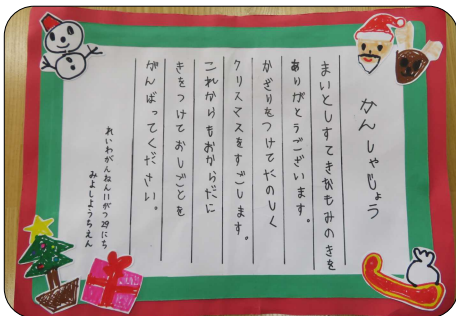 かんしゃじょう
まいとしすてきなもみのきを
ありがとうございます。
かざりをつけてたのしく
クリスマスをすごします。
これからもおからだに
きをつけておしごとを
がんばってください。
れいわがんねん11がつ29にち
みよしようちえん